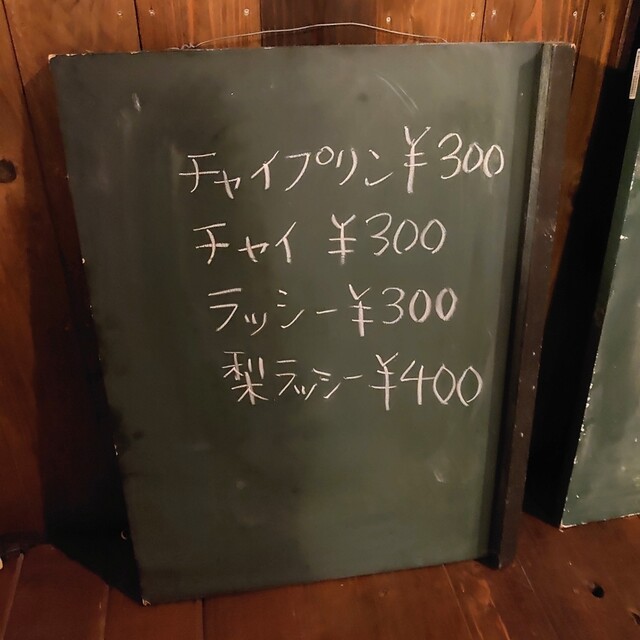 チャイプリン ¥300
チャイ ¥300
ラッシー ¥300
梨ラッシー ¥400